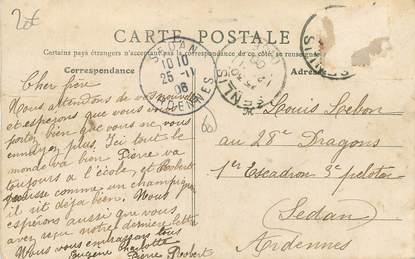 2f
CARTE POSTALE
Certains pays étrangers n'acceptant pas la correspondance de ce côté, se renseigner
Correspondance
Adresse
SEDAN
10 10
25 - 11
06
ARDENNES
SENLIS
SENLIS
Cher frère
Nous attendons de vos nouvelles
et espérons que vous vous
portez bien que vous ne vous
ennuyez plus. Ici tout le
monde va bien Pierre va
toujours à l'école, et Robert
pousse comme un champignon
il rit déjà bien. Nous
espérons aussi que vous
avez reçu notre dernière lettre
Nous vous embrassons tous
Eugène Charlotte
Pierre Robert
Louis Lebon
au 28e Dragons
1er Escadron 3e peloton
Sedan
Ardennes